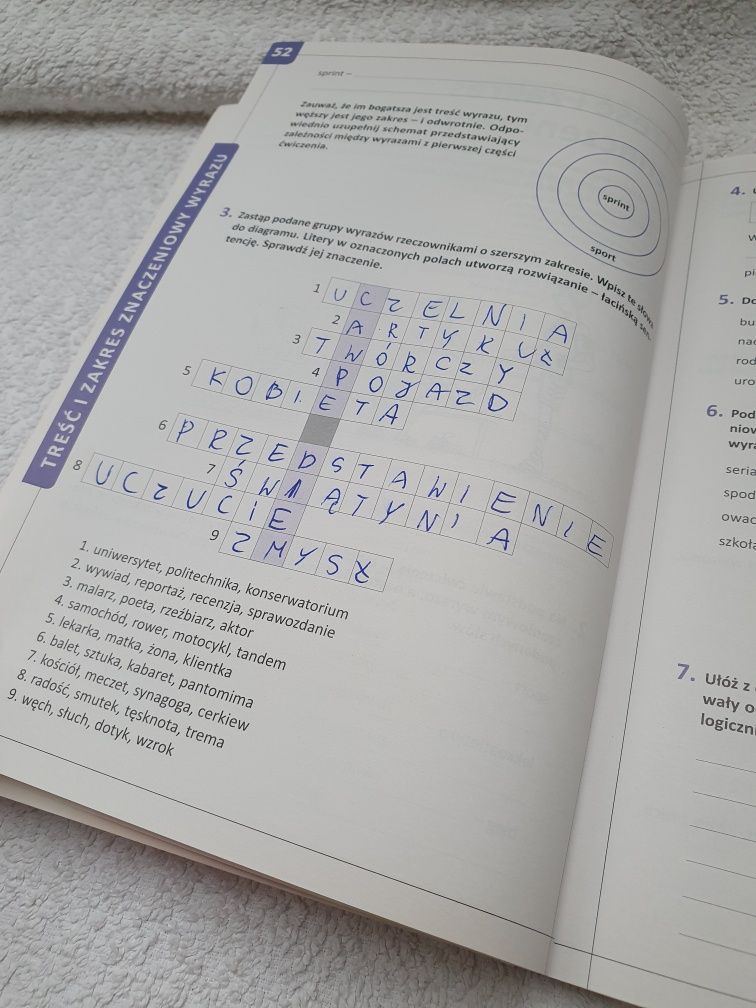 52
sprint –
Zauważ, że im bogatsza jest treść wyrazu, tym
węższy jest jego zakres – i odwrotnie. Odpo-
wiednio uzupełnij schemat przedstawiający
zależności między wyrazami z pierwszej części
ćwiczenia.
sprint
sport
TREŚĆ I ZAKRES ZNACZENIOWY WYRAZU
3. Zastąp podane grupy wyrazów rzeczownikami o szerszym zakresie. Wpisz te słowa
do diagramu. Litery w oznaczonych polach utworzą rozwiązanie – łacińską sen-
tencję. Sprawdź jej znaczenie.
1 UCZELNIA
2 ARTYKUŁ
3 TWÓRCZY
4 POJAZD
5 KOBIETA
6 PRZEDSTAWIENIE
7 ŚWIĄTYNIA
8 UCZUCIE
9 ZMYSŁ
1. uniwersytet, politechnika, konserwatorium
2. wywiad, reportaż, recenzja, sprawozdanie
3. malarz, poeta, rzeźbiarz, aktor
4. samochód, rower, motocykl, tandem
5. lekarka, matka, żona, klientka
6. balet, sztuka, kabaret, pantomima
7. kościół, meczet, synagoga, cerkiew
8. radość, smutek, tęsknota, trema
9. węch, słuch, dotyk, wzrok
4.
5. Do
bu
nad
rod
uro
6. Pod
niow
wyra
seria
spod
owac
szkoła
7. Ułóż z
wały o
logiczn